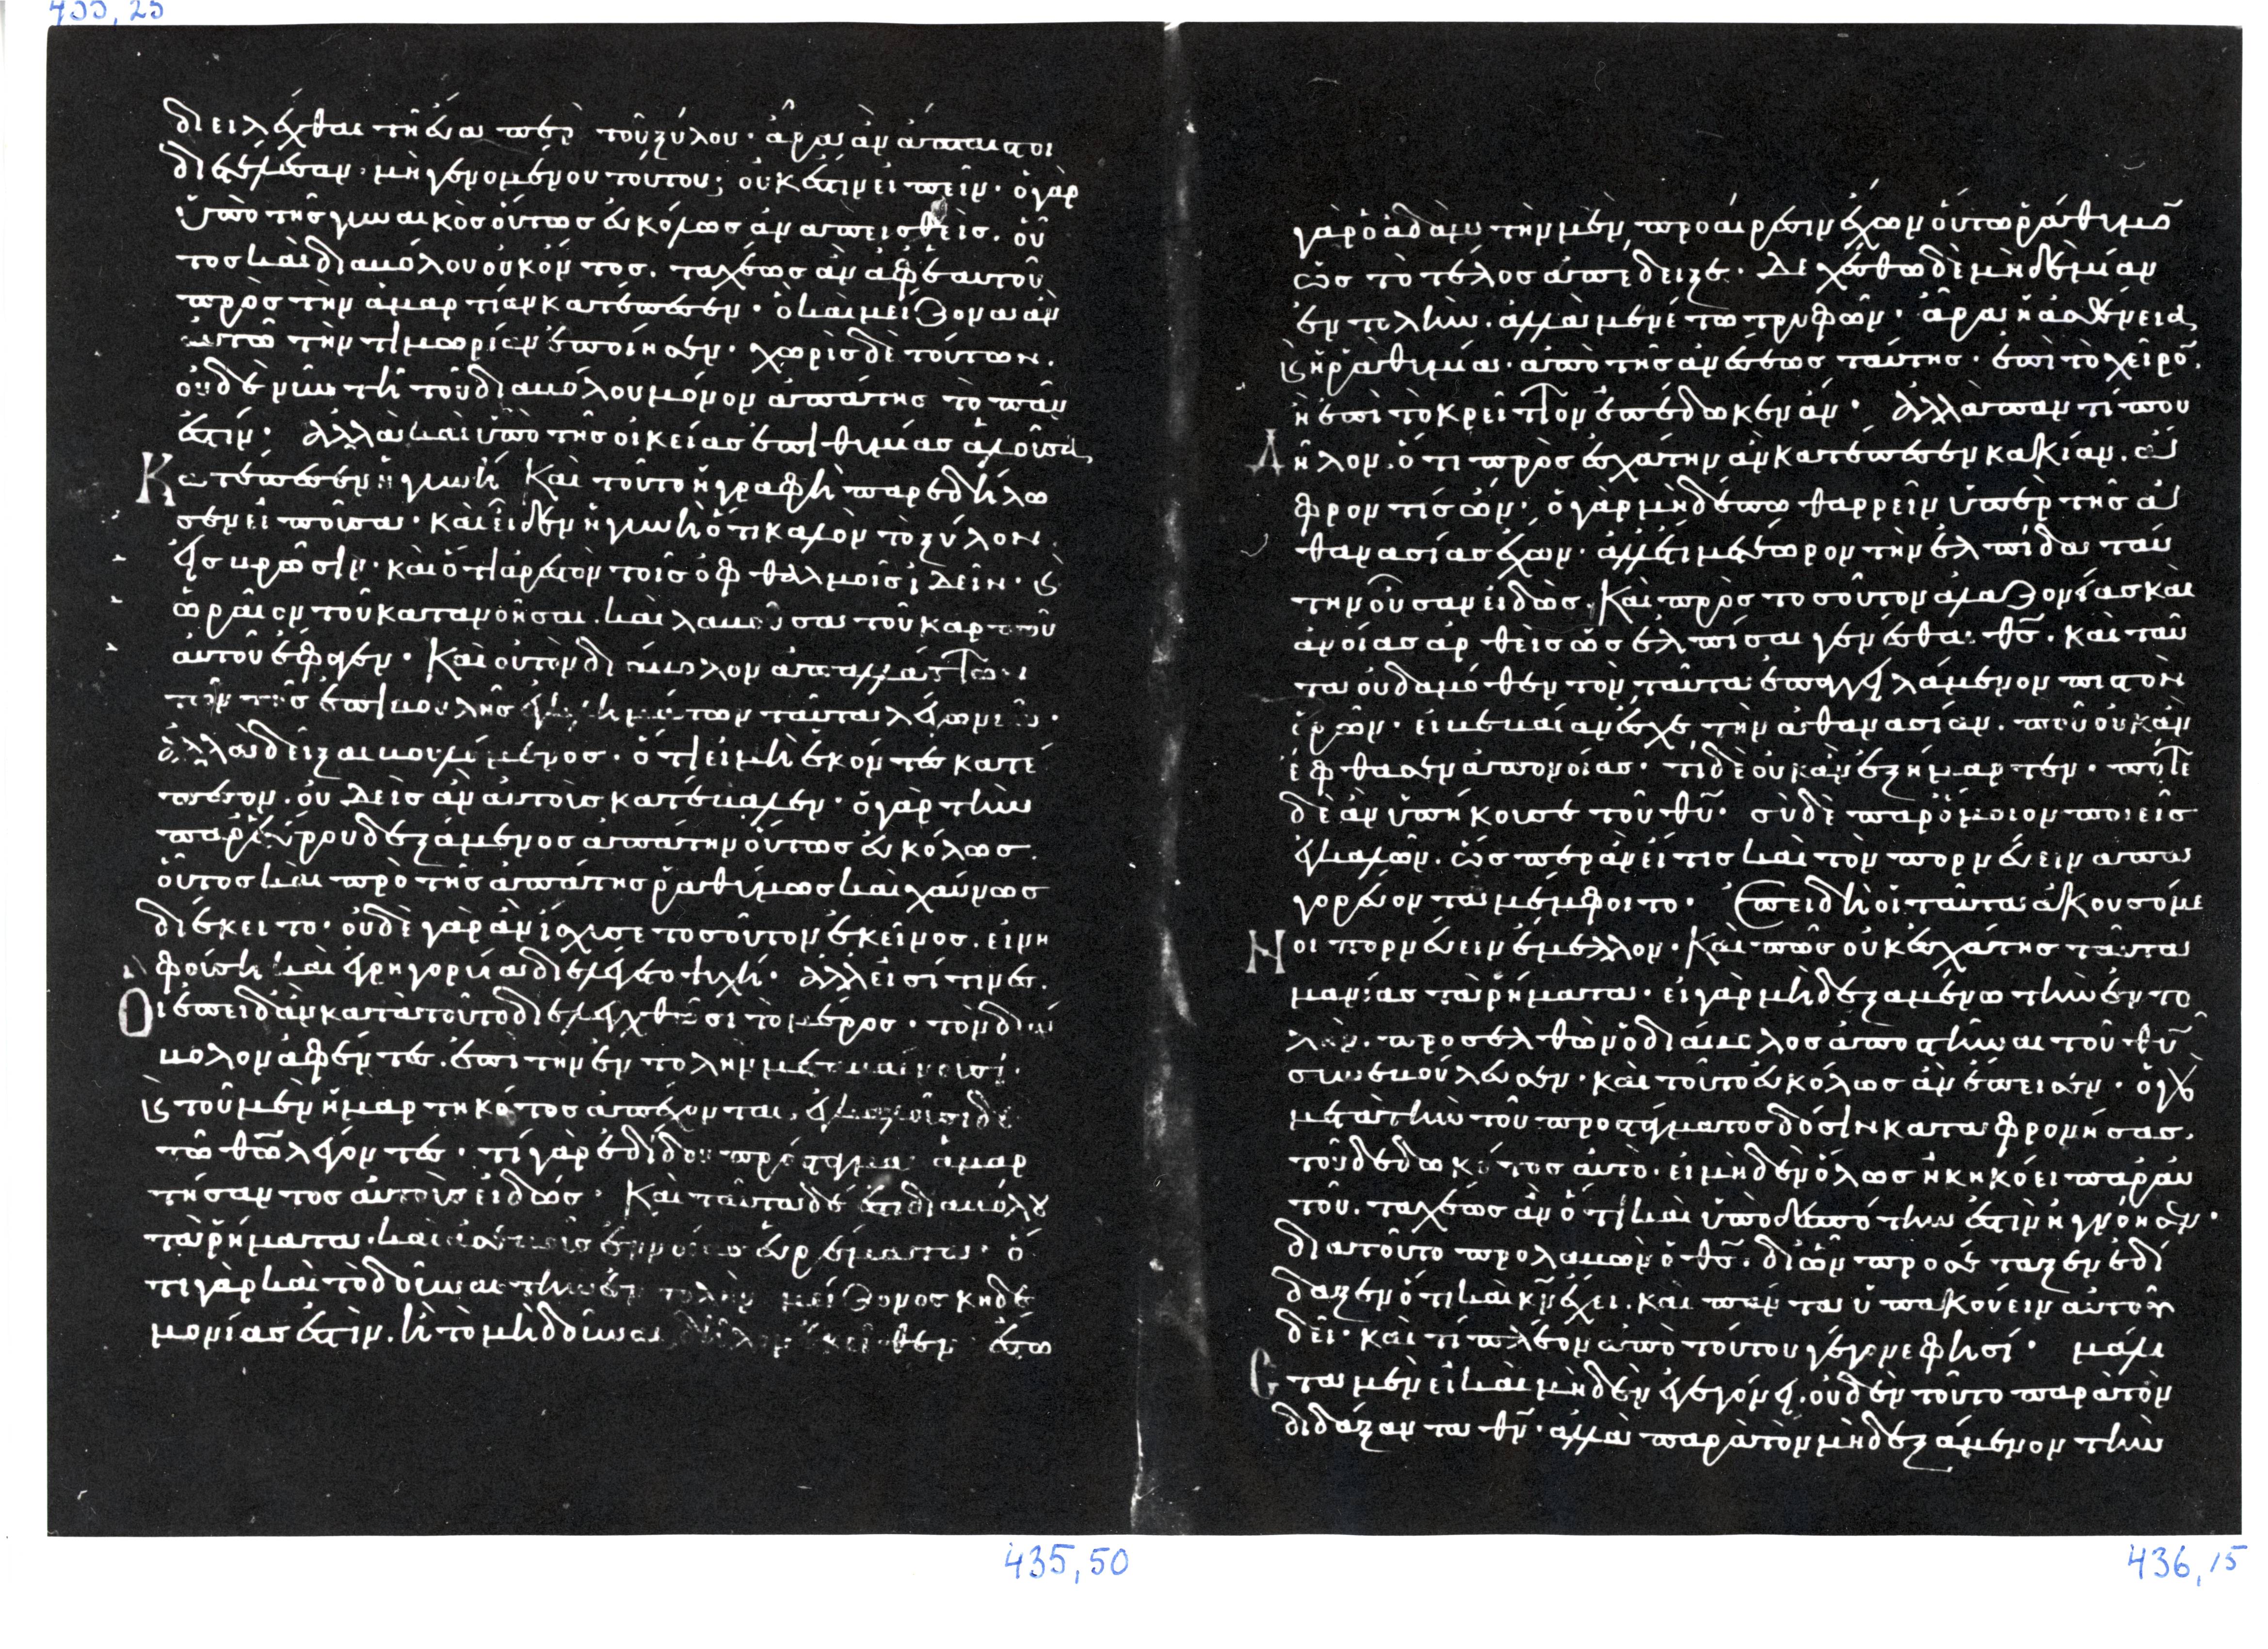 435,25
διειλέχθαι τῆ εὔα περὶ τοῦ ξύλου· ἆρα ἂν ἀπαιστοι
διέμεναν· μὴ γενομένου τούτου; οὐκ ἔστιν εἰπεῖν· ὁ γὰρ
ὑπὸ τῆς γυναικὸς οὕτως εὐκόλως ἀναπεισθεὶς. οὗ
τος καὶ διαβόλου οὐκ ὄντος. ταχέως ἂν ἀφ' ἑαυτοῦ
πρὸς τὴν ἁμαρτίαν κατέπεσεν· ὃ καὶ μείζονα ἂν
αὐτῶ τὴν τιμωρίαν ἐποίησεν· χωρὶς δὲ τούτων.
οὐδὲ νῦν τῆ τοῦ διαβόλου μόνον ἀπάτης τὸ πᾶν
ἐστιν· ἀλλὰ καὶ ὑπὸ τῆς οἰκείας ἐπιθυμίας ἁλοῦσα,
Κατέπεσεν ἡ γυνή Καὶ τοῦτο ἡ γραφὴ παρεδήλω
σεν εἰποῦσα· καὶ εἶδεν ἡ γυνὴ ὅτι καλὸν τὸ ξύλον.
εἰς βρῶσιν· καὶ ὅτι ἀρεστὸν τοῖς ὀφθαλμοῖς ἰδεῖν· καὶ
ὡραῖον τοῦ κατανοῆσαι. καὶ λαβοῦσα τοῦ καρποῦ
αὐτοῦ ἔφαγεν· Καὶ οὐ τὸν διάβολον ἀπαλλάττων
τῶν τῆς ἐπιβουλῆς ἐγκλημάτων ταῦτα λέγω νῦν·
ἀλλὰ δεῖξαι βουλόμενος· ὅτι εἰ μὴ ἑκόντες κατέ
πεσον. οὐδεὶς ἂν αὐτοὺς κατέβαλεν· ὁ γὰρ τὴν
παρ' ἑτέρου δεξάμενος ἀπάτην οὕτως εὐκόλως.
οὗτος καὶ πρὸ τῆς ἀπάτης ῥαθύμως καὶ χαύνως
διέκειτο· οὐδὲ γὰρ ἂν ἴσχυσε τοσοῦτον ἐκεῖνος. εἰ νη
φούση καὶ ἐγρηγορυία διελέγετο ψυχῆ· ἀλλ' εἰσί τινες.
Οἱ ἐπειδὰν κατὰ τοῦτο διελεγχθῶσι τὸ μέρος· τὸν διά
βολον ἀφέντες. ἐπὶ τὴν ἐντολὴν μεταβαίνουσι·
καὶ τοῦ μὲν ἡμαρτηκότος ἀπέχονται. ἐγκαλοῦσι δὲ
τῶ θῶ λέγοντες· τί γὰρ ἐδίδου πρόσταγμα ἁμαρ
τήσαντος αὐτοὺς εἰδώς· Καὶ ταῦτα δέ ἐστι διαβόλου
τὰ ῥήματα. καὶ ἀσεβοῦς ἐννοίας εὑρέματα· ὅ
τι γὰρ καὶ τὸ δοῦναι τὴν ἐντολὴν μείζονος κηδε
μονίας ἐστίν. ἢ τὸ μὴ δοῦναι δῆλον ἐκεῖθεν ἔστω
γὰρ ὁ ἀδὰμ τὴν μὲν προαίρεσιν ἔχων οὕτω ῥάθυμον
ὡς τὸ τέλος ἀπέδειξε· Δεχέσθω δὲ μηδεμίαν
ἐντολήν. ἀλλὰ μενέτω τρυφῶν· ἆρα ἡ ἀσθένεια,
καὶ ἡ ῥαθυμία. ἀπὸ τῆς ἀνέσεως ταύτης· ἐπὶ τὸ χεῖρον.
ἢ ἐπὶ τὸ κρεῖττον ἐπέδωκεν ἄν· ἀλλὰ παντί που
Δῆλον. ὅτι πρὸς ἐσχάτην ἂν κατέπεσεν κακίαν. ἀ
φροντιστῶν· ὁ γὰρ μηδέπω θαρρεῖν ὑπὲρ τῆς ἀ
θανασίας ἔχων· ἀλλ' ἔτι μετέωρον τὴν ἐλπίδα ταύ
την οὖσαν εἰδὼς. Καὶ πρὸς τοσοῦτον ἀλαζονείας καὶ
ἀνοίας ἀρθεὶς ὡς ἐλπίσαι γενέσθαι θς. καὶ ταῦ
τα οὐδαμόθεν τὸν ταῦτα ἐπαγγελλόμενον πιστὸν
ὁρῶν· εἰ βεβαίαν ἔσχε τὴν ἀθανασίαν. ποῦ οὐκ ἂν
ἔφθασεν ἀπονοίας· τί δὲ οὐκ ἂν ἐξήμαρτεν· πότε
δὲ ἂν ὑπήκουσε τοῦ θῦ· σὺ δὲ παρόμοιον ποιεῖς
ἐγκαλῶν. ὥσπερ ἂν εἴ τις καὶ τὸν πορνεύειν ἀπα
γορεύοντα μέμφοιτο· Ἐπειδὴ οἱ ταῦτα ἀκουσόμε
Νοι πορνεύειν ἔμελλον· Καὶ πῶς οὐκ ἐσχάτης ταῦτα
μανίας τὰ ῥήματα· εἰ γὰρ μὴ δεξαμένω τὴν ἐντο
λὴν. προσελθὼν ὁ διάβολος ἀποστῆναι τοῦ θῦ
συνεβούλευσεν· καὶ τοῦτο εὐκόλως ἂν ἔπεισεν· ὁ γὰρ
μετὰ τὴν τοῦ προστάγματος δόσιν καταφρονήσας.
τοῦ δεδωκότος αὐτό· εἰ μηδὲν ὅλως ἠκηκόει παρ' αὐ
τοῦ. ταχέως ἂν ὅτι καὶ ὑπὸ δεσπότην ἐστὶν ἠγνόησεν·
διὰ τοῦτο προλαβὼν ὁ θς. δι' ὧν προσέταξεν ἐδί
δαξεν ὅτι καὶ κν ἔχει. καὶ πάντα ὑπακούειν αὐτοῦ
δεῖ· καὶ τί πλέον ἀπὸ τούτου γέγονε φησί· μάλι
Στα μὲν εἰ καὶ μηδὲν ἐγεγόνει. οὐδὲν τοῦτο παρὰ τὸν
διδάξαντα θν· ἀλλὰ παρὰ τὸν μὴ δεξάμενον τὴν
435,50
436,15